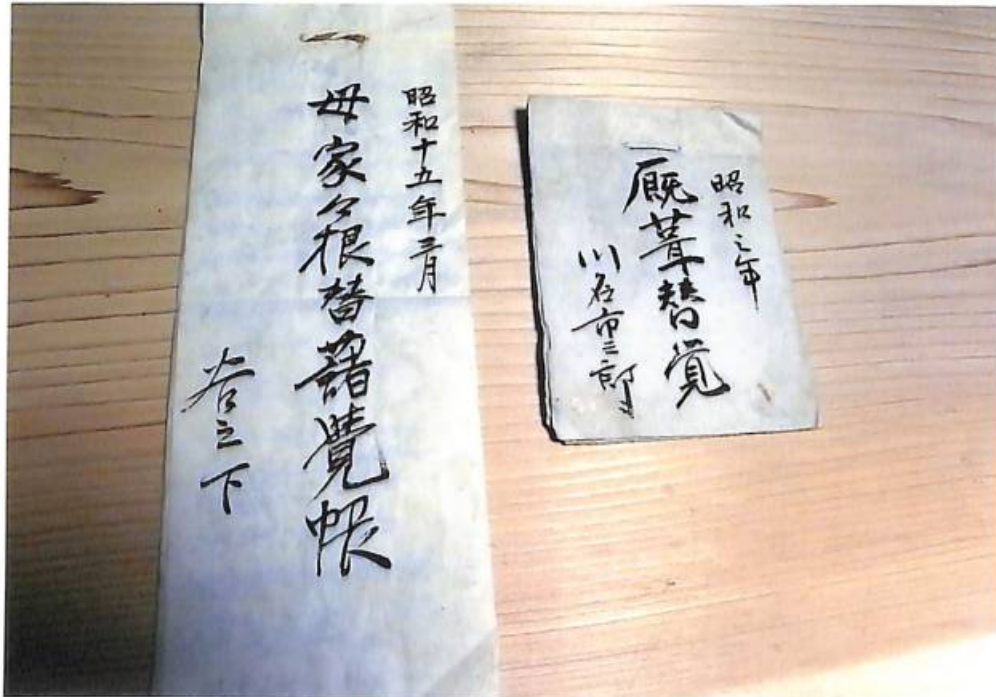 昭和三年
一厩葺替覚
川名市三郎
昭和十五年三月
一母家々根替諸覺帳
谷之下